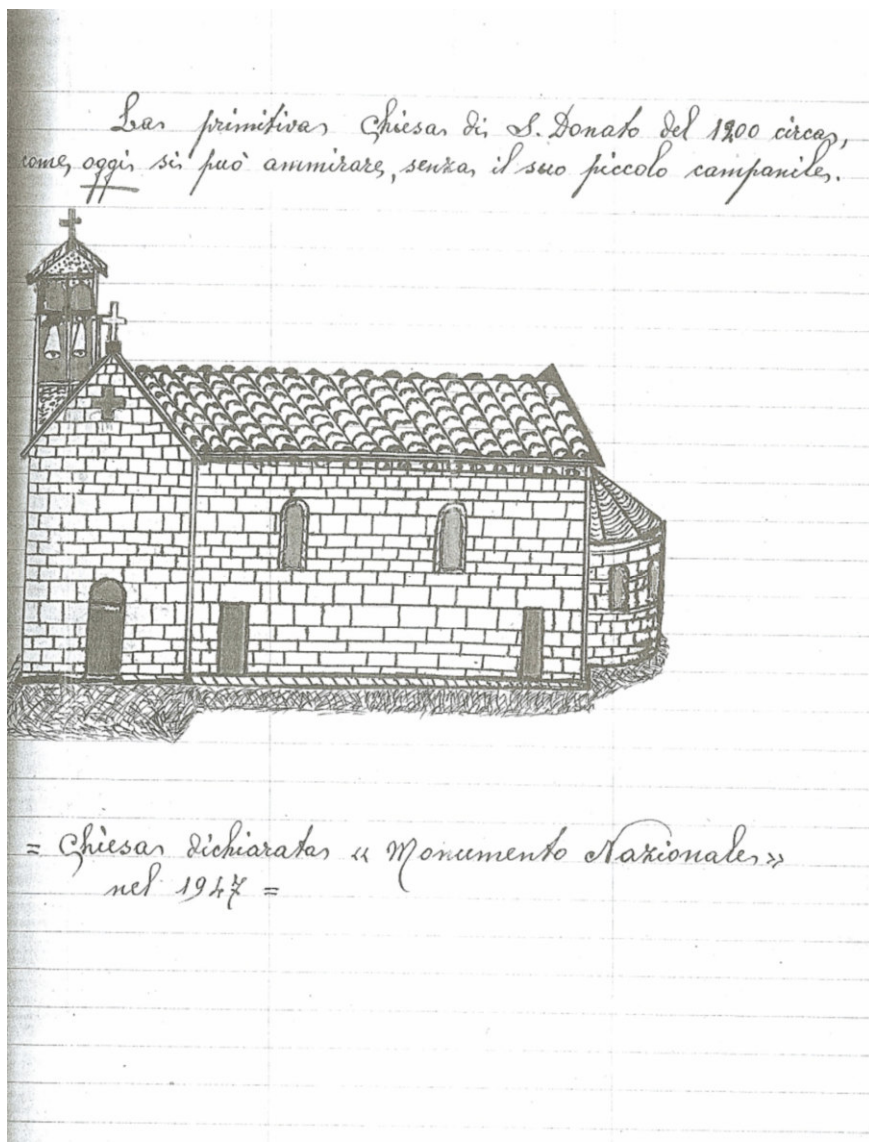 La primitiva Chiesa di S. Donato del 1200 circa,
come oggi si può ammirare, senza il suo piccolo campanile.
= Chiesa dichiarata « Monumento Nazionale »
nel 1947 =